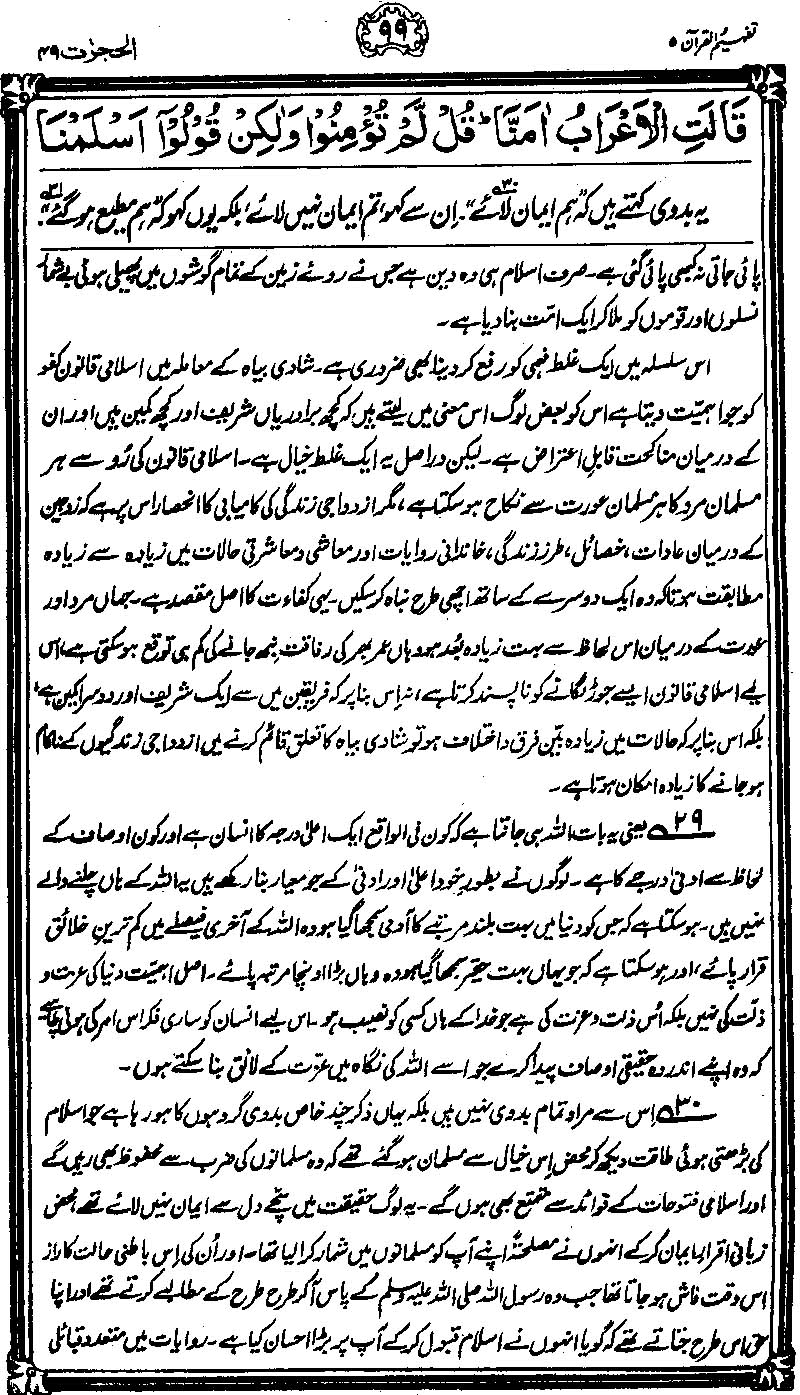 تفہیم القرآن ۵
۹۹
الحجرٰت ۴۹
قَالَتِ الْاَعْرَابُ اٰمَنَّا ؕ قُلْ لَّمْ تُؤْمِنُوْا وَلٰكِنْ قُوْلُوْٓا اَسْلَمْنَا
یہ بدوی کہتے ہیں کہ ”ہم ایمان لائے“۳۰۔ اِن سے کہو، تم ایمان نہیں لائے، بلکہ یوں کہو کہ ”ہم مطیع ہو گئے“۳۱۔
پائی جاتی نہ کبھی پائی گئی ہے۔ صرف اسلام ہی وہ دین ہے جس نے روئے زمین کے تمام گوشوں میں پھیلی ہوئی بے شمار
نسلوں اور قوموں کو ملا کر ایک امت بنا دیا ہے۔
اس سلسلہ میں ایک غلط فہمی کو رفع کر دینا بھی ضروری ہے۔ شادی بیاہ کے معاملہ میں اسلامی قانون کفو
کو جو اہمیت دیتا ہے اس کو بعض لوگ اس معنی میں لیتے ہیں کہ کچھ برادریاں شریف اور کچھ کمین ہیں اور ان
کے درمیان مناکحت قابلِ اعتراض ہے۔ لیکن دراصل یہ ایک غلط خیال ہے۔ اسلامی قانون کی رُو سے ہر
مسلمان مرد کا ہر مسلمان عورت سے نکاح ہو سکتا ہے، مگر ازدواجی زندگی کی کامیابی کا انحصار اس پر ہے کہ زوجین
کے درمیان عادات، خصائل، طرزِ زندگی، خاندانی روایات اور معاشی و معاشرتی حالات میں زیادہ سے زیادہ
مطابقت ہو تاکہ وہ ایک دوسرے کے ساتھ اچھی طرح نباہ کر سکیں۔ یہی کفاءت کا اصل مقصد ہے۔ جہاں مرد اور
عورت کے درمیان اس لحاظ سے بہت زیادہ بُعد ہو وہاں عمر بھر کی رفاقت نبھ جانے کی کم ہی توقع ہو سکتی ہے، اس
لیے اسلامی قانون ایسے جوڑ لگانے کو ناپسند کرتا ہے، نہ اِس بنا پر کہ فریقین میں سے ایک شریف اور دوسرا کمین ہے،
بلکہ اس بنا پر کہ حالات میں زیادہ بیّن فرق و اختلاف ہو تو شادی بیاہ کا تعلق قائم کرنے میں ازدواجی زندگیوں کے ناکام
ہو جانے کا زیادہ امکان ہوتا ہے۔
۲۹ یعنی یہ بات اللہ ہی جانتا ہے کہ کون فی الواقع ایک اعلیٰ درجہ کا انسان ہے اور کون اوصاف کے
لحاظ سے ادنیٰ درجے کا ہے۔ لوگوں نے بطورِ خود اعلیٰ اور ادنیٰ کے جو معیار بنا رکھے ہیں یہ اللہ کے ہاں چلنے والے
نہیں ہیں۔ ہو سکتا ہے کہ جس کو دنیا میں بہت بلند مرتبے کا آدمی سمجھا گیا ہو وہ اللہ کے آخری فیصلے میں کم ترین خلائق
قرار پائے، اور ہو سکتا ہے کہ جو یہاں بہت حقیر سمجھا گیا ہو وہ وہاں بڑا اونچا مرتبہ پائے۔ اصل اہمیت دنیا کی عزت و
ذلت کی نہیں بلکہ اُس ذلت و عزت کی ہے جو خدا کے ہاں کسی کو نصیب ہو۔ اس لیے انسان کو ساری فکر اس امر کی ہونی چاہیے
کہ وہ اپنے اندر وہ حقیقی اوصاف پیدا کرے جو اسے اللہ کی نگاہ میں عزت کے لائق بنا سکتے ہوں۔
۳۰ اِس سے مراد تمام بدوی نہیں ہیں بلکہ یہاں ذکر چند خاص بدوی گروہوں کا ہو رہا ہے جو اسلام
کی بڑھتی ہوئی طاقت دیکھ کر محض اِس خیال سے مسلمان ہو گئے تھے کہ وہ مسلمانوں کی ضرب سے محفوظ بھی رہیں گے
اور اسلامی فتوحات کے فوائد سے متمتع بھی ہوں گے۔ یہ لوگ حقیقت میں سچے دل سے ایمان نہیں لائے تھے، محض
زبانی اقرارِ ایمان کر کے انہوں نے مصلحتًہ اپنے آپ کو مسلمانوں میں شمار کرا لیا تھا۔ اور اُن کی اِس باطنی حالت کا راز
اس وقت فاش ہو جاتا تھا جب وہ رسول اللہ صلی اللہ علیہ وسلم کے پاس آ کر طرح طرح کے مطالبے کرتے تھے اور اپنا
حق اس طرح جتاتے تھے کہ گویا انہوں نے اسلام قبول کر کے آپ پر بڑا احسان کیا ہے۔ روایات میں متعدد قبائلی